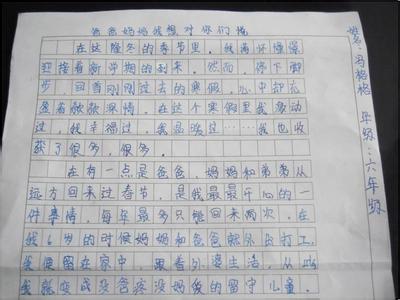 爸爸妈妈我想对你们说
在这隆冬的季节里，我满怀憧憬
迎接着新学期的到来。然而，停下脚
步，回首刚刚过去的寒假，心中却充
盈着款款深情。在这个寒假里我感动
过，我幸福过，我品尝过……我也收
获了很多，很多。
在有一点是爸爸，妈妈和弟弟从
远方回来过春节，是我最最开心的一
件事情，每年最多只能回来两次，在
我6岁的时候妈妈和爸爸就外出打工
我便留在家中，跟着外婆生活，从此
我就变成没爸疼没妈爱的留守儿童。
姓名：冯格格 年级：六年级